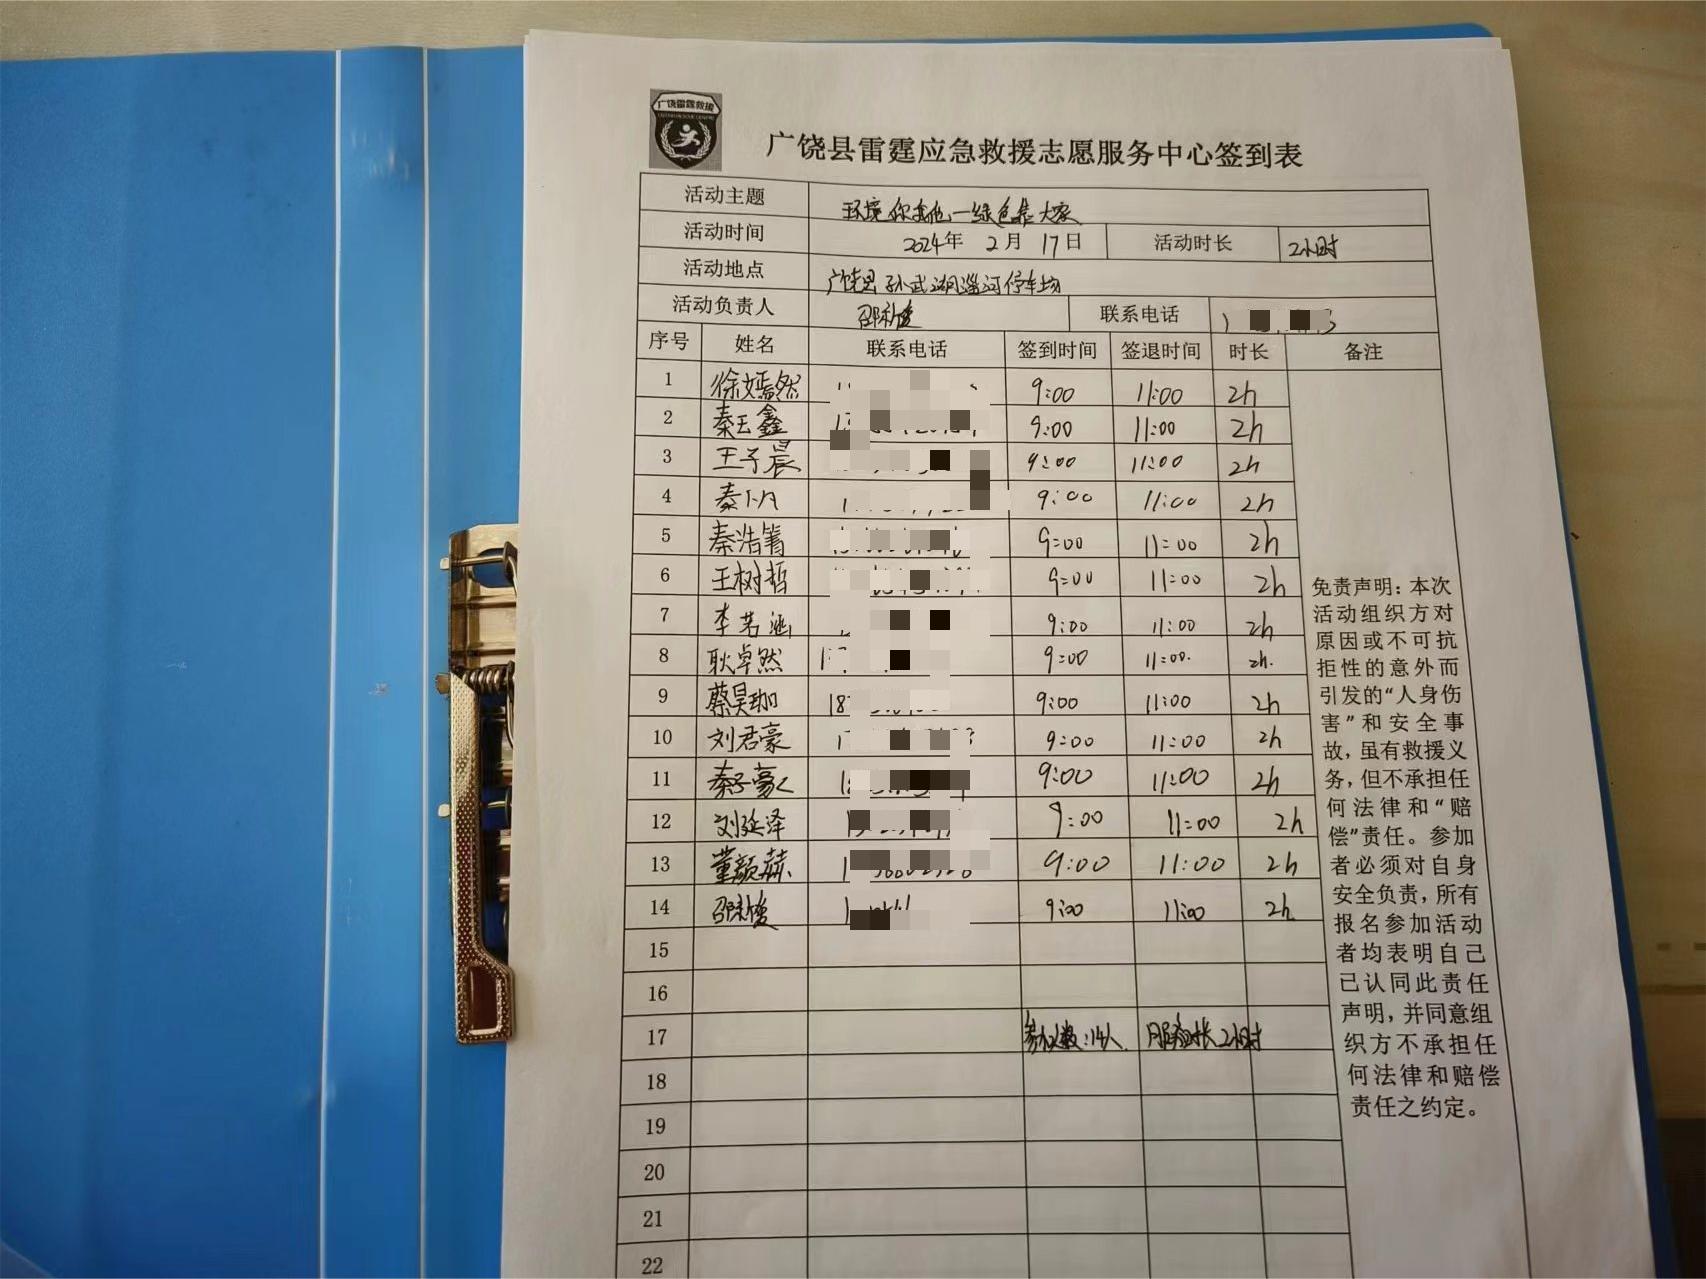 广饶雷霆救援
广饶县雷霆应急救援志愿服务中心签到表
活动主题 环境你我他 一绿色靠大家
活动时间 2024年 2月 17日 活动时长 2小时
活动地点 广饶县孙武湖淄河停车场
活动负责人 联系电话
序号 姓名 联系电话 签到时间 签退时间 时长 备注
1 徐嫣然 9:00 11:00 2h
2 秦玉鑫 9:00 11:00 2h
3 王子晨 9:00 11:00 2h
4 秦 9:00 11:00 2h
5 秦浩箐 9:00 11:00 2h
6 王树哲 9:00 11:00 2h
7 李茗涵 9:00 11:00 2h
8 耿卓然 9:00 11:00 2h
9 蔡昊珈 18 9:00 11:00 2h
10 刘君豪 9:00 11:00 2h
11 秦子豪 9:00 11:00 2h
12 刘延泽 9:00 11:00 2h
13 董颜赫 9:00 11:00 2h
14 9:00 11:00 2h
15
16
17 参加人数:14人 服务时长2小时
18
19
20
21
22
免责声明：本次
活动组织方对
原因或不可抗
拒性的意外而
引发的“人身伤
害”和安全事
故，虽有救援义
务，但不承担任
何法律和“赔
偿”责任。参加
者必须对自身
安全负责，所有
报名参加活动
者均表明自己
已认同此责任
声明，并同意组
织方不承担任
何法律和赔偿
责任之约定。